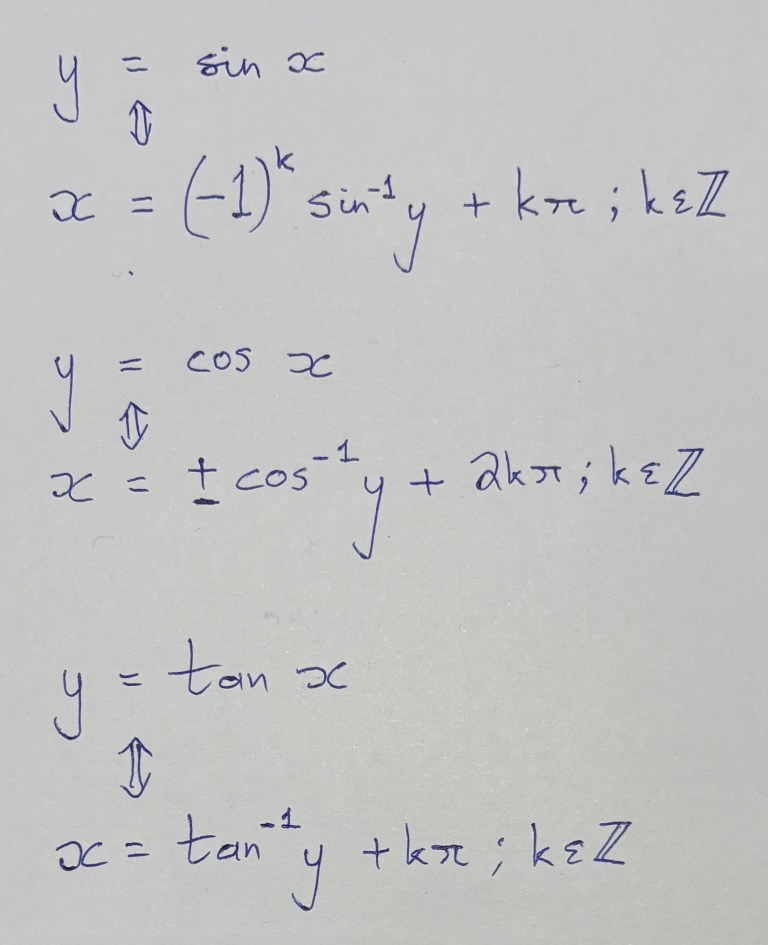 y = sin x
⇕
x = (-1)^k sin⁻¹y + kπ ; k ε ℤ
y = cos x
⇕
x = ± cos⁻¹y + 2kπ ; k ε ℤ
y = tan x
⇕
x = tan⁻¹y + kπ ; k ε ℤ